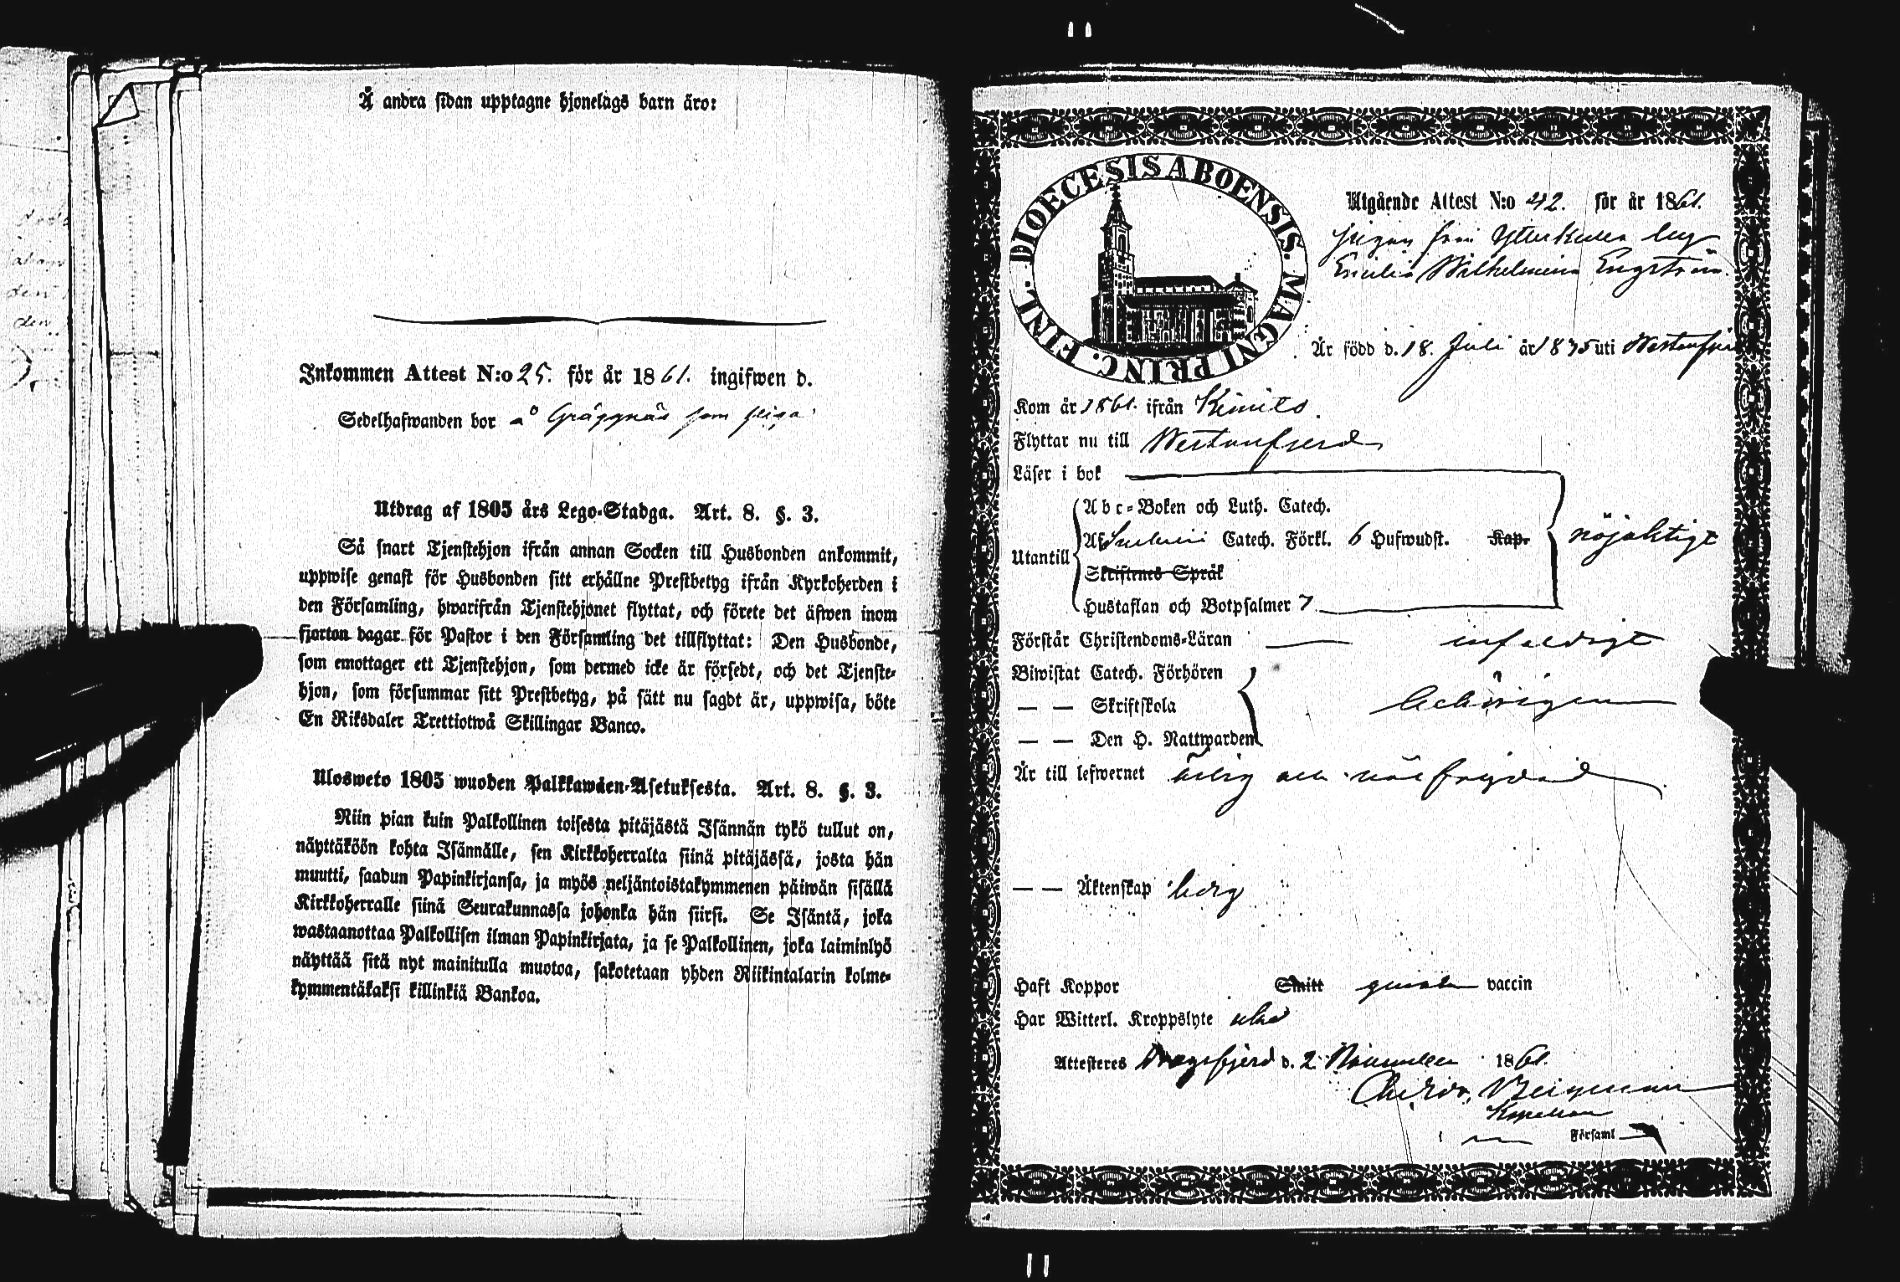 Å andra sidan upptagne hjonelags barn äro:
Inkommen Attest N:o 25. för år 1861. ingifwen d.
Sedelhafwanden bor å Gräggnäs som piga
Utdrag af 1805 års Lego-Stadga. Art. 8. §. 3.
Så snart Tjenstehjon ifrån annan Socken till Husbonden ankommit,
uppwise genast för Husbonden sitt erhållne Prestbetyg ifrån Kyrkoherden i
den Församling, hwarifrån Tjenstehjonet flyttat, och förete det äfwen inom
fjorton dagar för Pastor i den Församling det tillflyttat: Den Husbonde,
som emottager ett Tjenstehjon, som dermed icke är försedt, och det Tjenste-
hjon, som försummar sitt Prestbetyg, på sätt nu sagdt är, uppwisa, böte
En Riksdaler Trettiotwå Skillingar Banco.
Ulosweto 1805 wuoden Palkkawäen-Asetuksesta. Art. 8. §. 3.
Niin pian kuin Palkollinen toisesta pitäjästä Isännän tykö tullut on,
näyttäköön kohta Isännälle, sen Kirkkoherralta siinä pitäjässä, josta hän
muutti, saadun Papinkirjansa, ja myös neljäntoistakymmenen päiwän sisällä
Kirkkoherralle siinä Seurakunnassa johonka hän siirsi. Se Isäntä, joka
wastaanottaa Palkollisen ilman Papinkirjata, ja se Palkollinen, joka laiminlyö
näyttää sitä nyt mainitulla muotoa, sakotetaan yhden Riikintalarin kolme-
kymmentäkaksi killinkiä Bankoa.
FINL. DIOECESIS ABOENSIS. MAGNI PRINC.
Utgående Attest N:o 42. för år 1861.
pigan från Ytterkulla
Wilhelmina Engström.
Är född d. 18. Juli år 1835 uti Westanfjerd
Kom år 1861. ifrån Kimito.
Flyttar nu till Westanfjerd
Läser i bok
Abc-Boken och Luth. Catech.
Utantill Af Catech. Förkl. 6 Hufwudst. Kap. nöjaktigt
Skriftenes Språk
Hustaflan och Botpsalmer 7
Förstår Christendoms-Läran enfaldigt
Biwistat Catech. Förhören
— — Skriftskola behörigen
— — Den H. Nattwarden
Är till lefwernet ärlig och välfrejdad
— — Äktenskap ledig
Haft Koppor Smitt genom vaccin
Har Witterl. Kroppslyte utan
Attesteres Dragsfjerd d. 2 November 1861.
Bergman
Kapellan
Församl